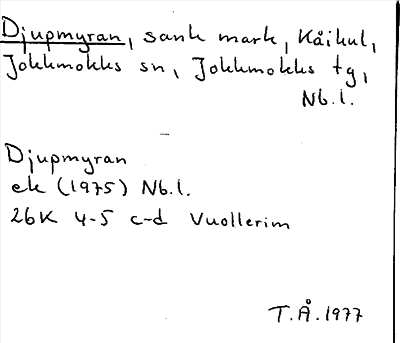 Djupmyran, sank mark, Kåikul,
Jokkmokks sn, Jokkmokks tg,
Nb.l.
Djupmyran
ek (1975) Nb.l.
26K 4-5 c-d Vuollerim
T.Å.1977